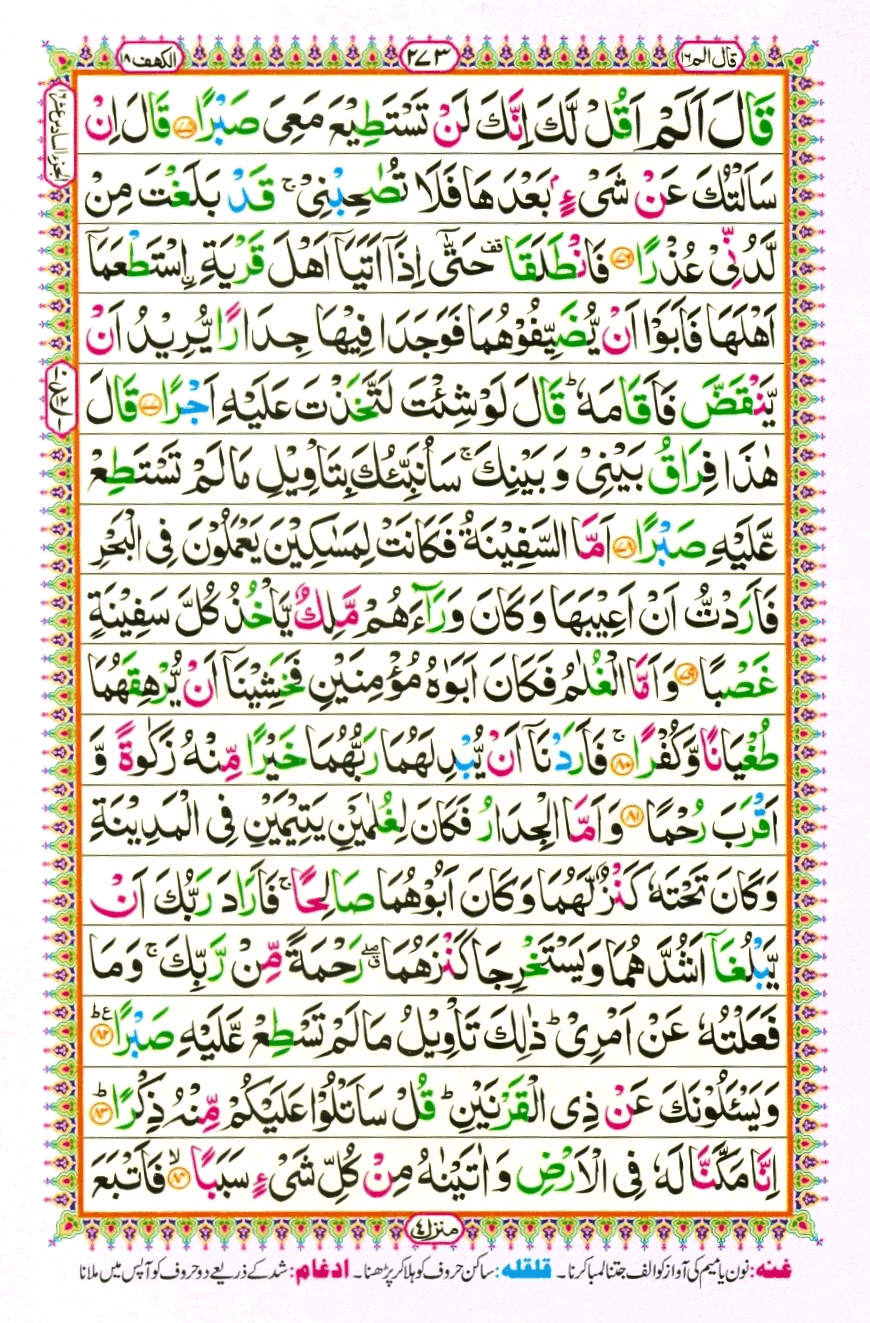 قال الم ١٦
٢٧٣
الكهف ١٨
الجزء السادس عشر ١٦
قَالَ اَلَمْ اَقُلْ لَّكَ اِنَّكَ لَنْ تَسْتَطِيْعَ مَعِىَ صَبْرًا ﴿٧٥﴾ قَالَ اِنْ
سَاَلْتُكَ عَنْ شَىْءٍۭ بَعْدَهَا فَلَا تُصٰحِبْنِىْ ۚ قَدْ بَلَغْتَ مِنْ
لَّدُنِّىْ عُذْرًا ﴿٧٦﴾ فَانْطَلَقَا ۥقف حَتّٰٓى اِذَآ اَتَيَآ اَهْلَ قَرْيَةِ ِۨاسْتَطْعَمَآ
اَهْلَهَا فَاَبَوْا اَنْ يُّضَيِّفُوْهُمَا فَوَجَدَا فِيْهَا جِدَارًا يُّرِيْدُ اَنْ
يَّنْقَضَّ فَاَقَامَهٗ ؕ قَالَ لَوْ شِئْتَ لَتَّخَذْتَ عَلَيْهِ اَجْرًا ﴿٧٧﴾ قَالَ
هٰذَا فِرَاقُ بَيْنِىْ وَ بَيْنِكَ ۚ سَاُنَبِّئُكَ بِتَاْوِيْلِ مَا لَمْ تَسْتَطِعْ
عَّلَيْهِ صَبْرًا ﴿٧٨﴾ اَمَّا السَّفِيْنَةُ فَكَانَتْ لِمَسٰكِيْنَ يَعْمَلُوْنَ فِى الْبَحْرِ
فَاَرَدْتُّ اَنْ اَعِيْبَهَا وَ كَانَ وَرَآءَهُمْ مَّلِكٌ يَّاْخُذُ كُلَّ سَفِيْنَةٍ
غَصْبًا ﴿٧٩﴾ وَ اَمَّا الْغُلٰمُ فَكَانَ اَبَوٰهُ مُؤْمِنَيْنِ فَخَشِيْنَآ اَنْ يُّرْهِقَهُمَا
طُغْيَانًا وَّ كُفْرًا ﴿٨٠﴾ ۚ فَاَرَدْنَآ اَنْ يُّبْدِلَهُمَا رَبُّهُمَا خَيْرًا مِّنْهُ زَكٰوةً وَّ
اَقْرَبَ رُحْمًا ﴿٨١﴾ وَ اَمَّا الْجِدَارُ فَكَانَ لِغُلٰمَيْنِ يَتِيْمَيْنِ فِى الْمَدِيْنَةِ
وَ كَانَ تَحْتَهٗ كَنْزٌ لَّهُمَا وَ كَانَ اَبُوْهُمَا صَالِحًا ۚ فَاَرَادَ رَبُّكَ اَنْ
يَّبْلُغَآ اَشُدَّهُمَا وَ يَسْتَخْرِجَا كَنْزَهُمَا ۖق رَحْمَةً مِّنْ رَّبِّكَ ۚ وَ مَا
فَعَلْتُهٗ عَنْ اَمْرِىْ ؕ ذٰلِكَ تَاْوِيْلُ مَا لَمْ تَسْطِعْ عَّلَيْهِ صَبْرًا ﴿٨٢﴾ ؕع
وَ يَسْئَلُوْنَكَ عَنْ ذِى الْقَرْنَيْنِ ؕ قُلْ سَاَتْلُوْا عَلَيْكُمْ مِّنْهُ ذِكْرًا ﴿٨٣﴾ ؕ
اِنَّا مَكَّنَّا لَهٗ فِى الْاَرْضِ وَ اٰتَيْنٰهُ مِنْ كُلِّ شَىْءٍ سَبَبًا ﴿٨٤﴾ ۙ فَاَتْبَعَ
منزل ٤
غنه: نون یا میم کی آواز کو الف جتنا لمبا کرنا۔ قلقله: ساکن حروف کو ہلا کر پڑھنا۔ ادغام: شد کے ذریعے دو حروف کو آپس میں ملانا